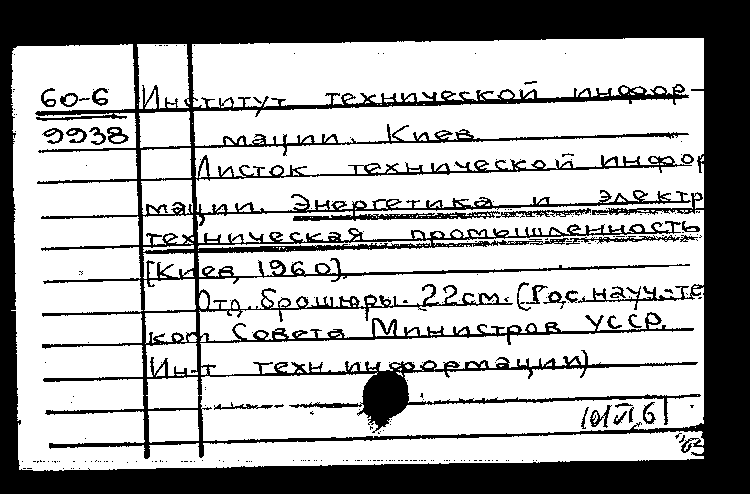 60-6 Институт технической инфор-
9938 мации. Киев.
Листок технической инфор
мации. Энергетика и электр
техническая промышленность
[Киев, 1960].
Отд. брошюры. 22см. (Гос. науч.-те
ком Совета Министров УССР.
Ин-т техн. информации)
10/VI 61